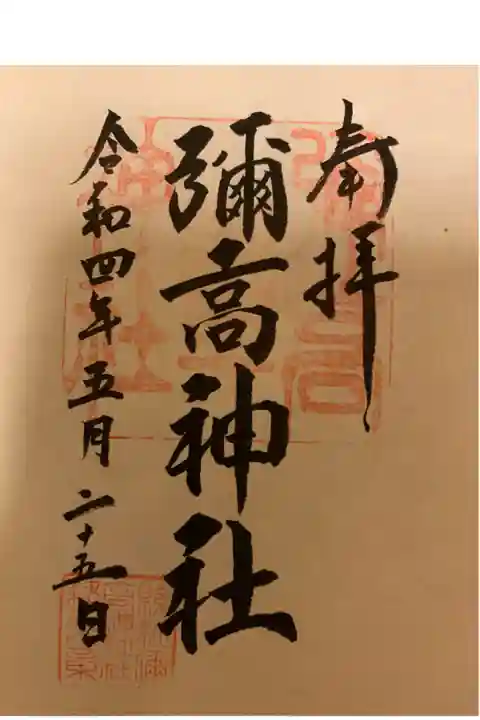 奉拝
彌高神社
令和四年五月二十五日